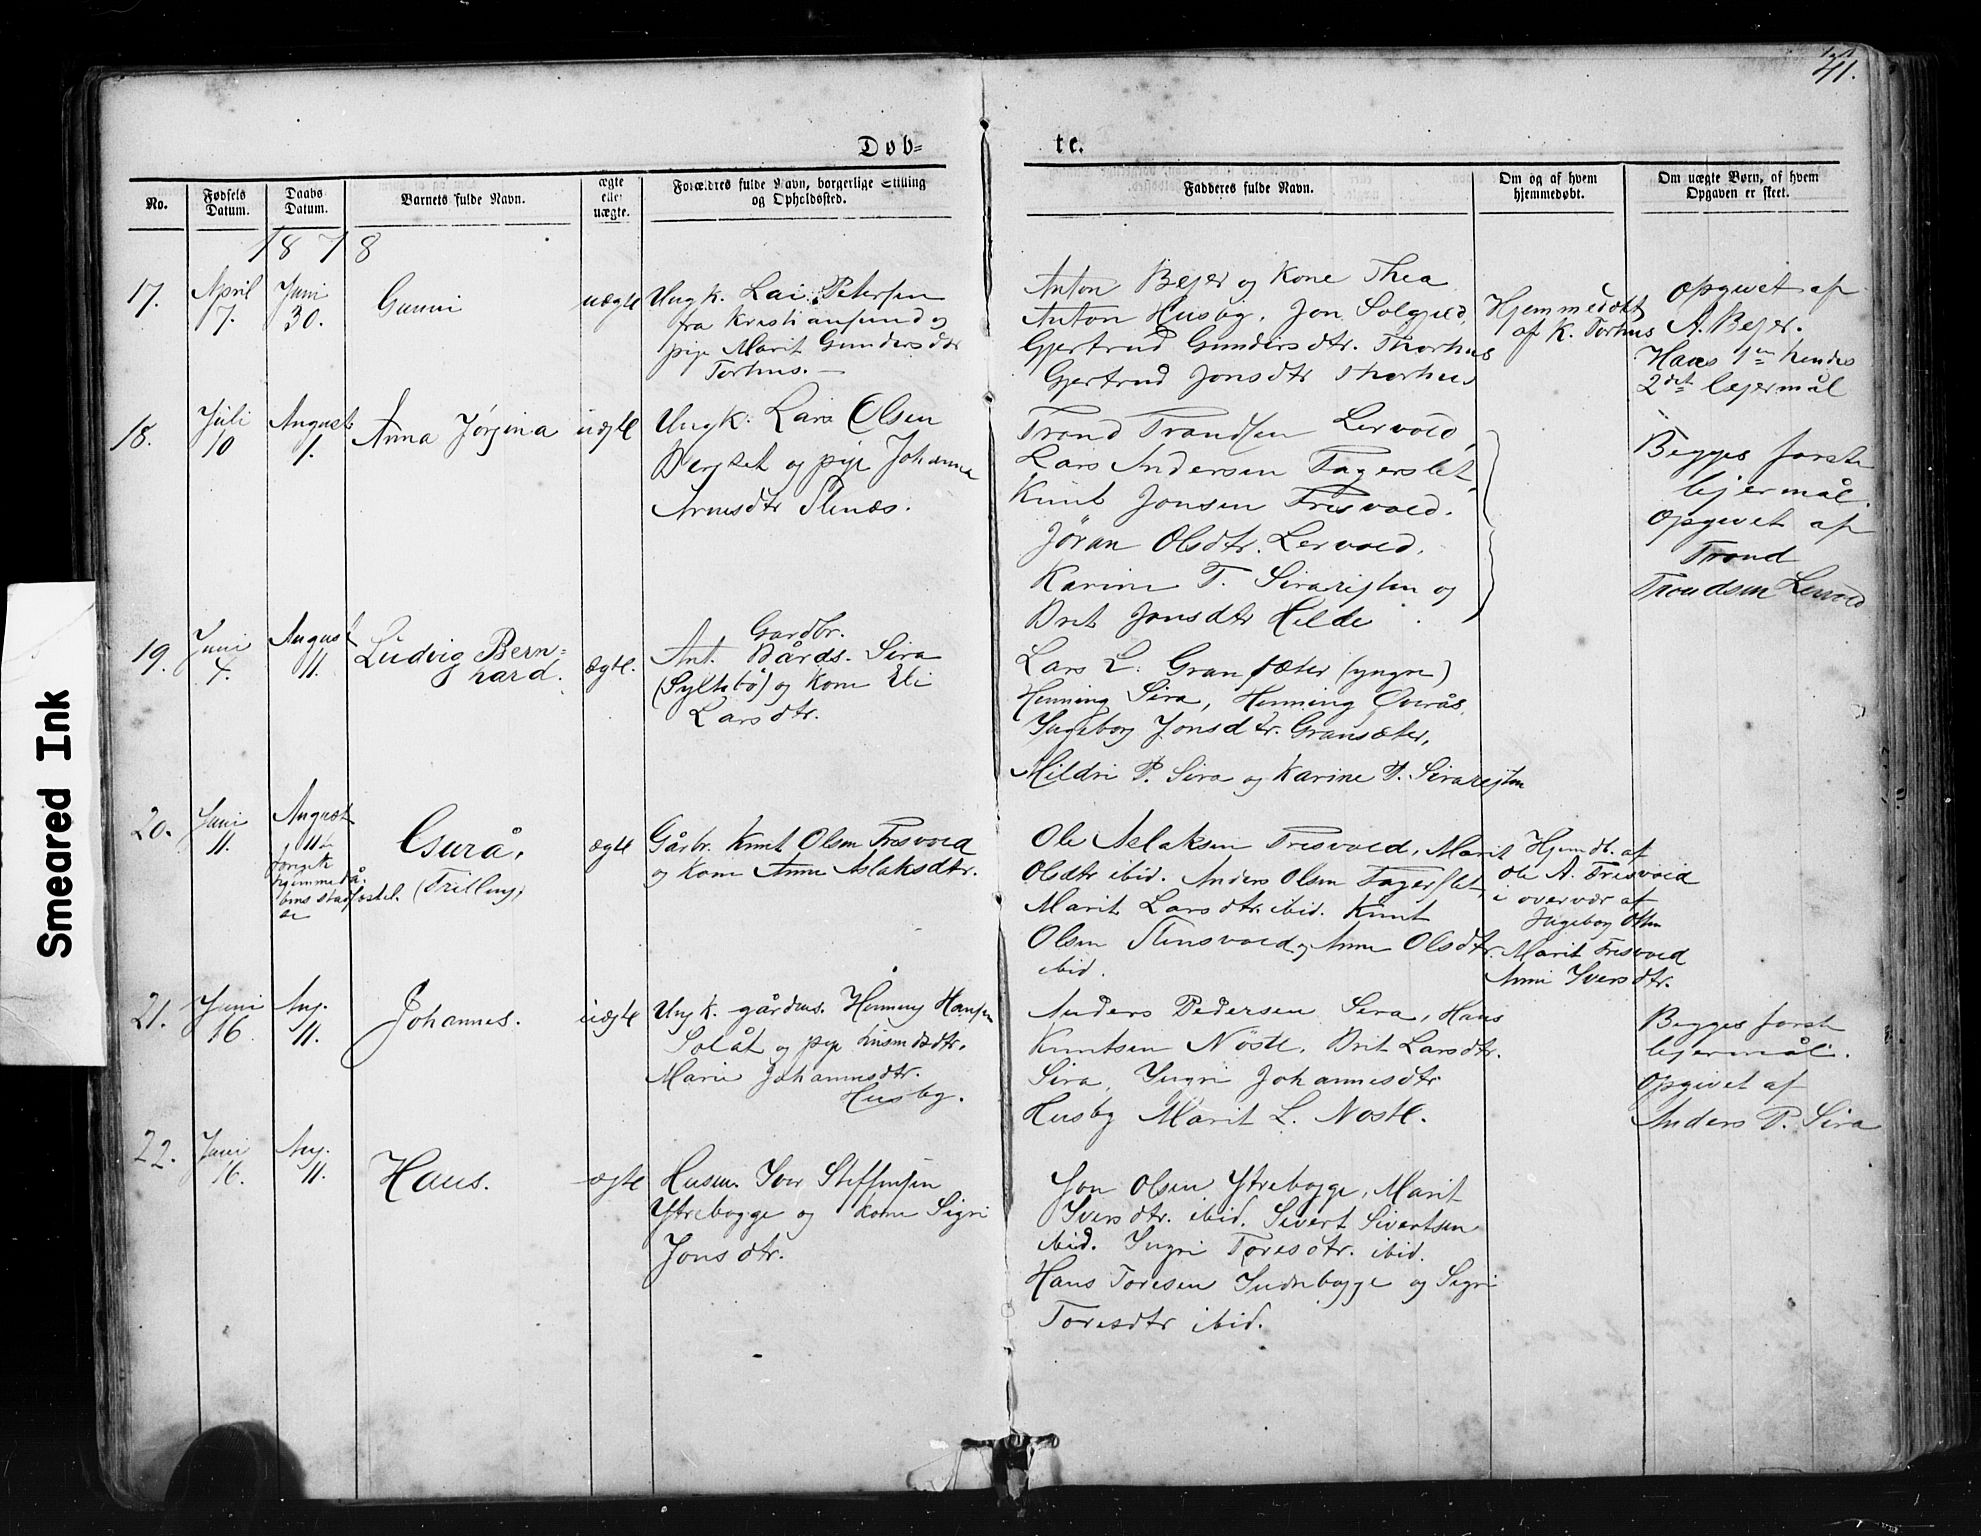 41.
Døb=
te.
No.
Fødsels Datum.
Daabs Datum.
Barnets fulde Navn.
ægte eller uægte.
Forældres fulde Navn, borgerlige Stilling og Opholdssted.
Fadderes fulde Navn.
Om og af hvem hjemmedøbt.
Om uægte Børn, af hvem Opgaven er skeet.
1878
17.
April 7.
Juni 30.
Gunni
uægte
Ungk. Lai Petersen
fra Kristiansund og
pige Marit Gundersdtr
Torhus. —
Anton Bejer og Kone Thea
Anton Husby, Jon Solgjeld,
Gjertrud Gundersdtr. Thorhus
Gjertrud Jonsdtr Thorhus
Hjemmedøbt
af K. Torhus
Opgivet af
A. Bejer.
Hans 1ste hendes
2det lejermål
18.
Juli 10
August 1.
Anna Jørgina
uægte
Ungk. Lars Olsen
Bergset og pige Johanna
Arnesdtr Stenæs.
Trond Trondsen Lervold,
Lars Andersen Fagerslet,
Knut Jonsen Tresvold.
Jöran Olsdtr. Lervold.
Karine T. Sirarejten og
Brit Jonsdtr Hilde.
Begges første
lejermål.
Opgivet af
Trond
Trondsen Lervold
19.
Juni 4.
August 11.
Ludvig Bern=
hard.
ægte.
Gardbr.
Ant. Bårds. Sira
(Syltebö) og Kone Eli
Larsdtr.
Lars L. Gransæter (yngre)
Henning Sira, Henning Överås,
Ingeborg Jonsdtr. Gransæter,
Mildri P. Sira og Karine T. Sirarejten
20.
Juni 11.
August 11te
hjemmedå-
Gurå,
(Trilling)
ægte
Gårbr. Knut Olsen Tresvold
og Kone Anne Aslaksdtr.
Ole Aslaksen Tresvold, Marit
Olsdtr ibid. Anders Olsen Fagerslet,
Marit Larsdtr. ibid. Knut
Olsen Stensvold og Anne Olsdtr.
ibid.
Hjemdb. af
Ole A. Tresvold
i overvær af
Ingebor Olsen
Marit Tresvold
Anne Iversdtr.
21.
Juni 16
Aug. 11.
Johannes.
uægte
Ungk. gårdms. Henning Hansen
Solåt og pige husmdsdtr.
Marie Johannesdtr.
Husby.
Anders Pedersen Sira, Hans
Knutsen Nöste, Brit Larsdtr.
Sira, Ingri Johannesdtr
Husby Marit L. Nöste.
Begges første
lejermål.
Opgivet af
Anders P. Sira
22.
Juni 16.
Aug. 11.
Hans.
ægte
Husm. Iver Steffensen
Ytrebögge og kone Sigri
Jonsdtr.
Jon Olsen Ytrebögge, Marit
Iversdtr. ibid. Sivert Sivertsen
ibid. Ingri Toresdtr. ibid.
Hans Toresen Indrebögge og Sigri
Toresdtr ibid.
Smeared Ink